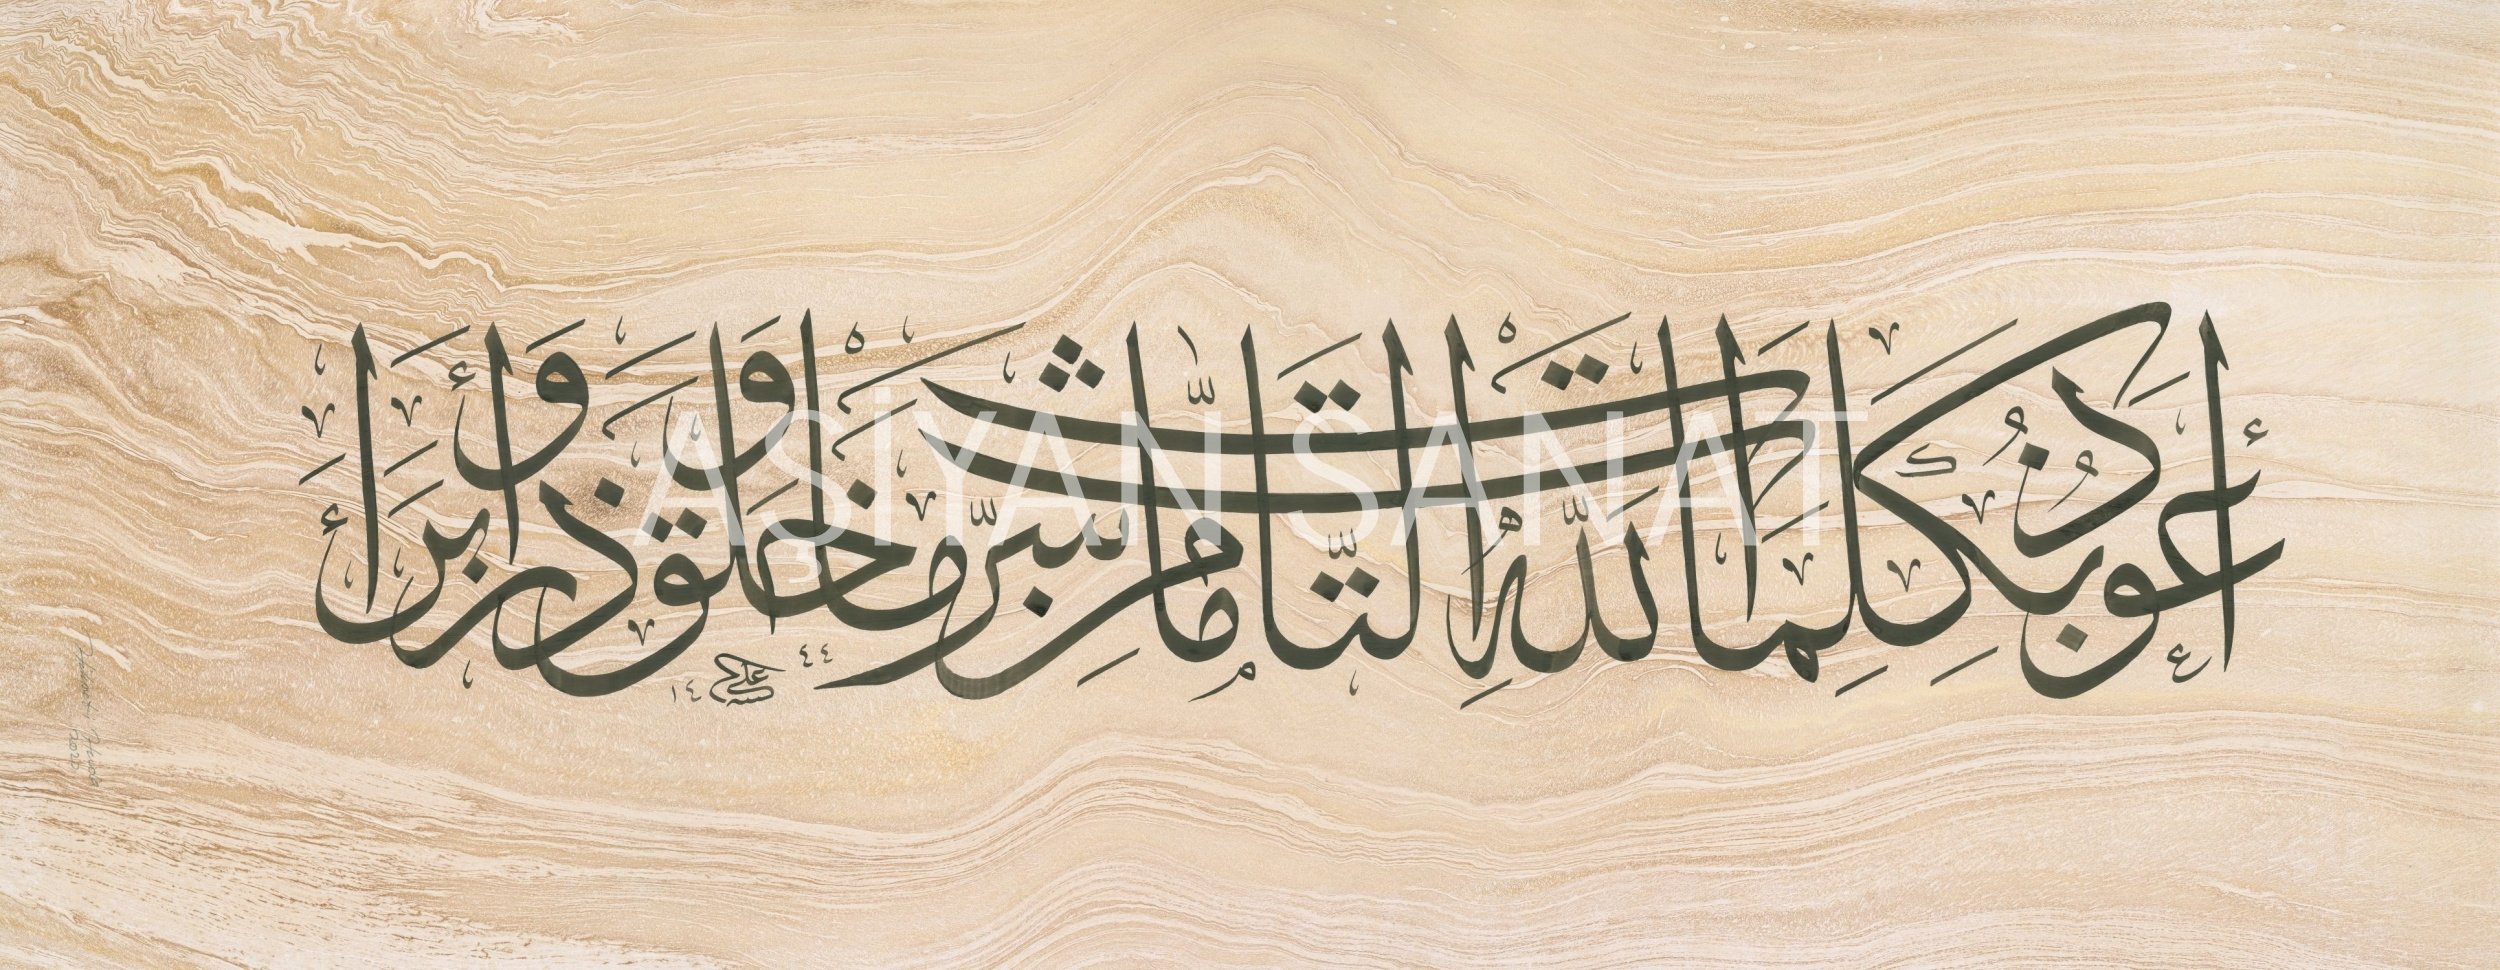 أَعُوذُ بِكَلِمَاتِ اللّٰهِ التَّامَّاتِ مِنْ شَرِّ مَا خَلَقَ وَذَرَأَ وَبَرَأَ
١٤٤٤
AŞİYAN SANAT
2020